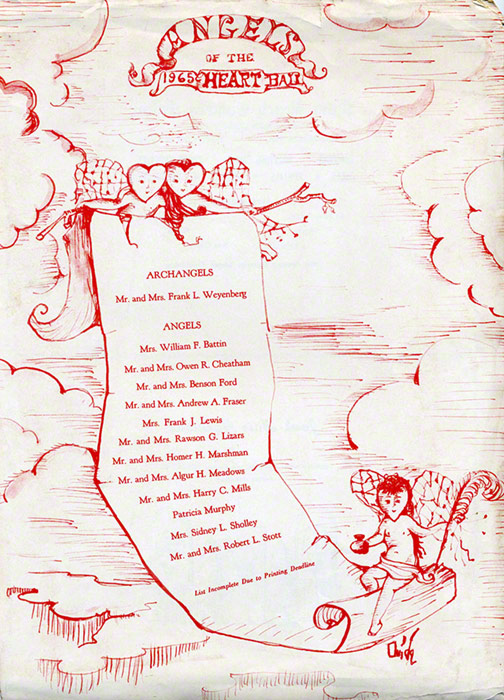 ANGELS
OF THE
1965 HEART BALL
ARCHANGELS
Mr. and Mrs. Frank L. Weyenberg
ANGELS
Mrs. William F. Battin
Mr. and Mrs. Owen R. Cheatham
Mr. and Mrs. Benson Ford
Mr. and Mrs. Andrew A. Fraser
Mrs. Frank J. Lewis
Mr. and Mrs. Rawson G. Lizars
Mr. and Mrs. Homer H. Marshman
Mr. and Mrs. Algur H. Meadows
Mr. and Mrs. Harry C. Mills
Patricia Murphy
Mrs. Sidney L. Sholley
Mr. and Mrs. Robert L. Stott
List Incomplete Due to Printing Deadline